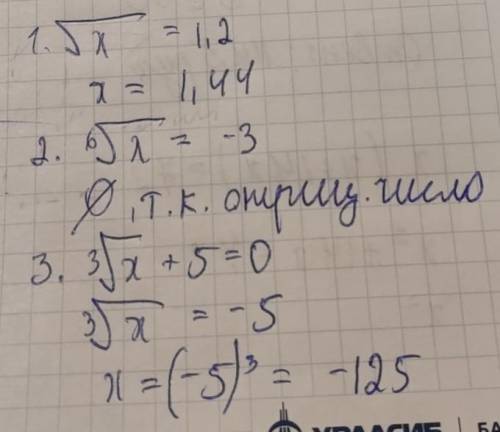 1. √x = 1,2
x = 1,44
2. ⁶√x = -3
∅, т.к. отриц. число
3. ³√x + 5 = 0
³√x = -5
x = (-5)³ = -125
УРАЛСИБ | БА